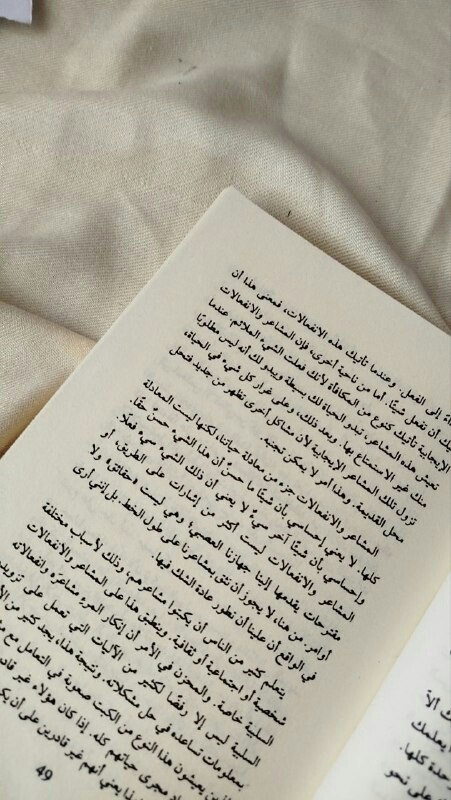 ةً إلى الفعل. وعندما تأتيك هذه الانفعالات، فمعنى هذا أن
عليك أن تفعل شيئًا. أما من ناحية أخرى، فإن المشاعر والانفعالات
الإيجابية تأتيك كنوع من المكافأة لأنك فعلت الشيء الملائم. عندما
تعيش هذه المشاعر تبدو الحياة لك بسيطة ويبدو لك أنه ليس مطلوبًا
منك غير الاستمتاع بها. وبعد ذلك، وعلى غرار كل شيء في الحياة،
تزول تلك المشاعر الإيجابية لأن مشاكل أخرى تظهر من جديد فتحل
محل القديمة. وهذا أمر لا يمكن تجنبه.
المشاعر والانفعالات جزء من معادلة حياتنا، لكنها ليست المعادلة
كلها. لا يعني إحساسي بأن شيئًا ما حسنٌ أن هذا الشيء حسنٌ حقًا.
وإحساسي بأن شيئًا آخر سيءٌ لا يعني أن ذلك الشيء سيءٌ فعلًا.
المشاعر والانفعالات ليست أكثر من إشارات على الطريق، أو
مقترحات يقدمها إلينا جهازنا العصبي؛ وهي ليست «حقائق» ولا
أوامر. من هنا، لا يجوز أن نثق بمشاعرنا على طول الخط. بل إنني أرى
في الواقع أن علينا أن نطور عادة الشك فيها.
يتعلم كثير من الناس أن يكبتوا مشاعرهم، وذلك لأسباب مختلفة
شخصية أو اجتماعية أو ثقافية. وينطبق هذا على المشاعر والانفعالات
السلبية خاصة. والمحزن في الأمر أن إنكار المرء مشاعره وانفعالاته
السلبية ليس إلا رفضًا لكثير من الآليات التي تعمل على تزويد
بمعلومات تساعده في حل مشكلاته. ونتيجة هذا، يجد كثير من الأ
الذين يعيشون هذا النوع من الكبت صعوبة في التعامل مع
مجرى حياتهم كله. إذا كان هؤلاء غير قادر
هذا يعني أنهم غير قادرين على أن
49
يعلمك
حدة كلها.
على نحو